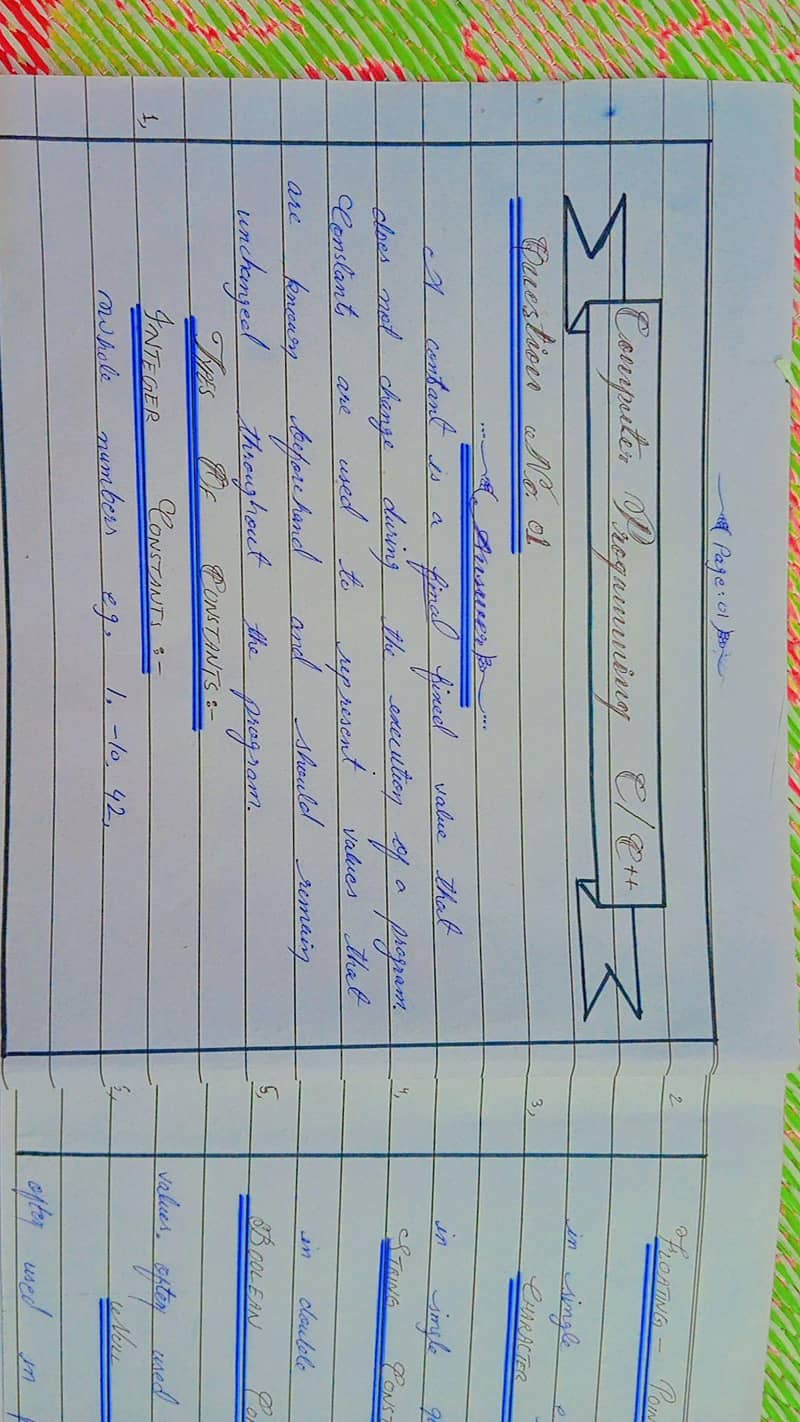 Page: 01
Computer Programming C/C++
Question No. 01
Answer
A contant is a fined fixed value that
does not change during the execution of a program.
Constants are used to represent values that
are known beforehand and should remain
unchanged throughout the program.
TYPES OF CONSTANTS:-
1, INTEGER CONSTANTS:-
whole numbers e.g, 1, -10, 42,
2 FLOATING-
in single
3, CHARACTER
in single
4, STRING CONST
in double
5, BOOLEAN
values, often used
often used in